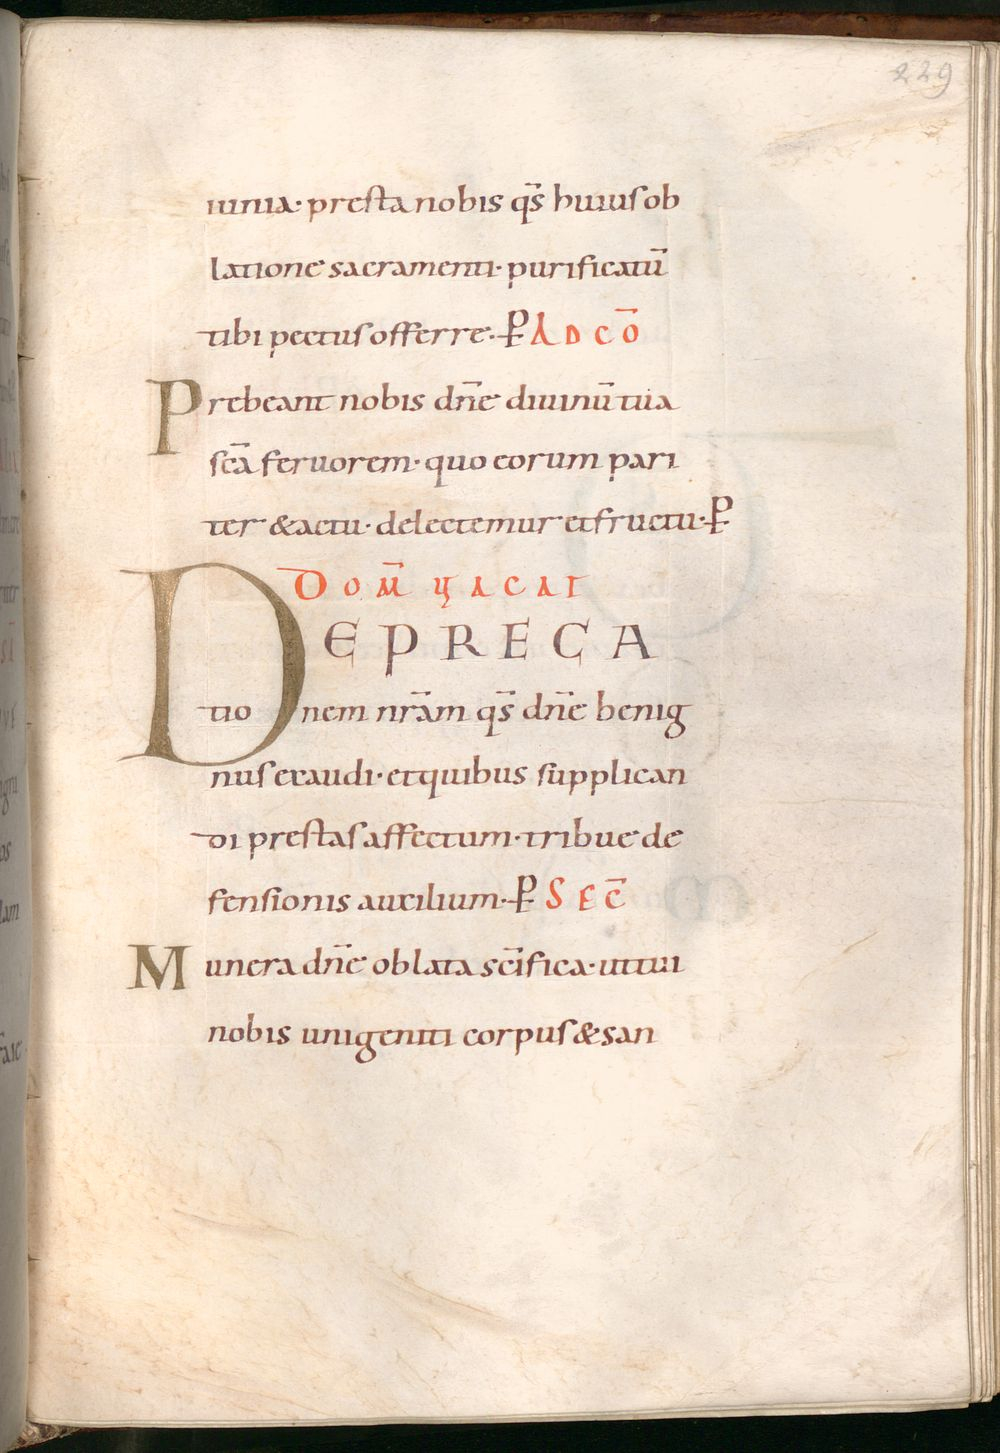 229
iunia· presta nobis qs̄ huius ob
latione sacramenti· purificatū
tibi pectus offerre·P̶ AD CŌ
Prebeant nobis dn̄e diuinū tua
sc̄a feruorem· quo eorum pari
ter & actu· delectemur et fructu·P̶
DOM̄ UACAT
DEPRECA
tionem nr̄am qs̄ dn̄e benig
nus exaudi· et quibus supplican
di prestas affectum· tribue de
fensionis auxilium·P̶ SEC̄
Munera dn̄e oblata sc̄ifica· ut tui
nobis unigeniti corpus & san